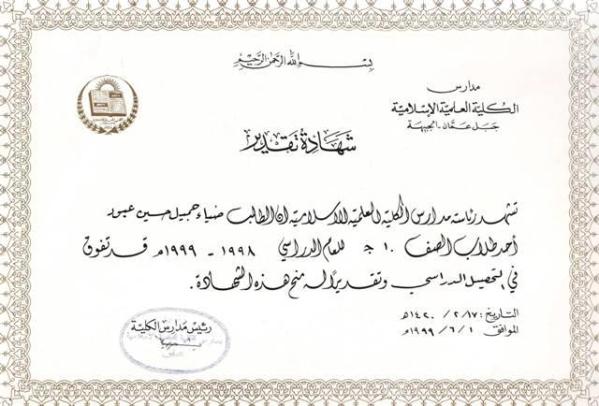 بسم الله الرحمن الرحيم
مدارس
الكلية العلمية الإسلامية
جبل عمّان - الجبيهة
شهادة تقدير
تشهد رئاسة مدارس الكلية العلمية الاسلامية ان الطالب ضياء جميل حسين عبود
أحد طلاب الصف ١٠ جـ للعام الدراسي ١٩٩٨ - ١٩٩٩م قد تفوق
في التحصيل الدراسي وتقديرًا له منح هذه الشهادة.
التاريخ: ١٧ / ٢ / ١٤٢٠هـ
الموافق ١ / ٦ / ١٩٩٩م
رئيس مدارس الكلية